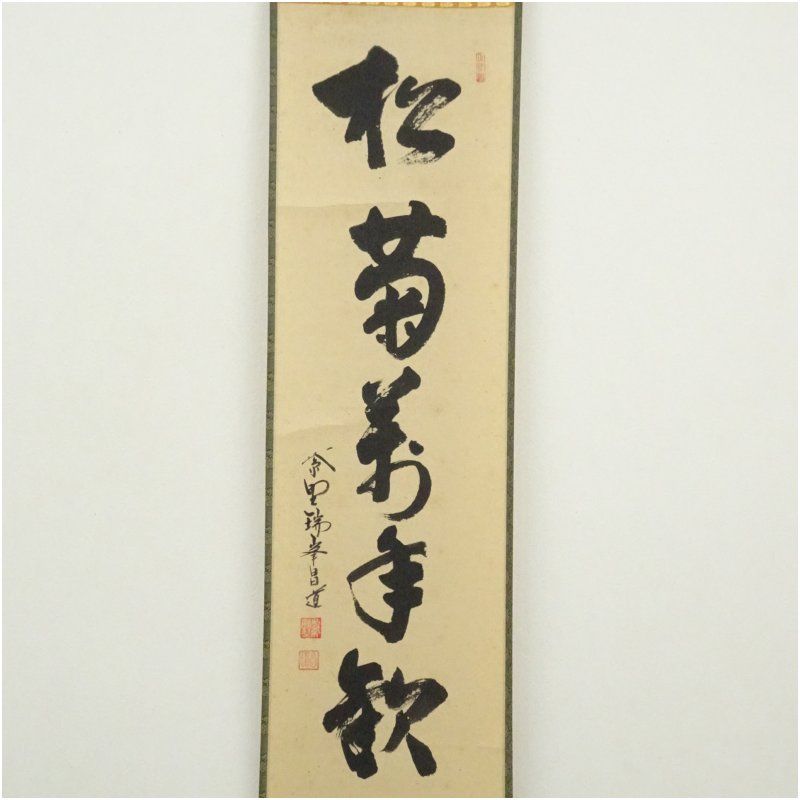 松菊萬年歓
紫野瑞峯昌道